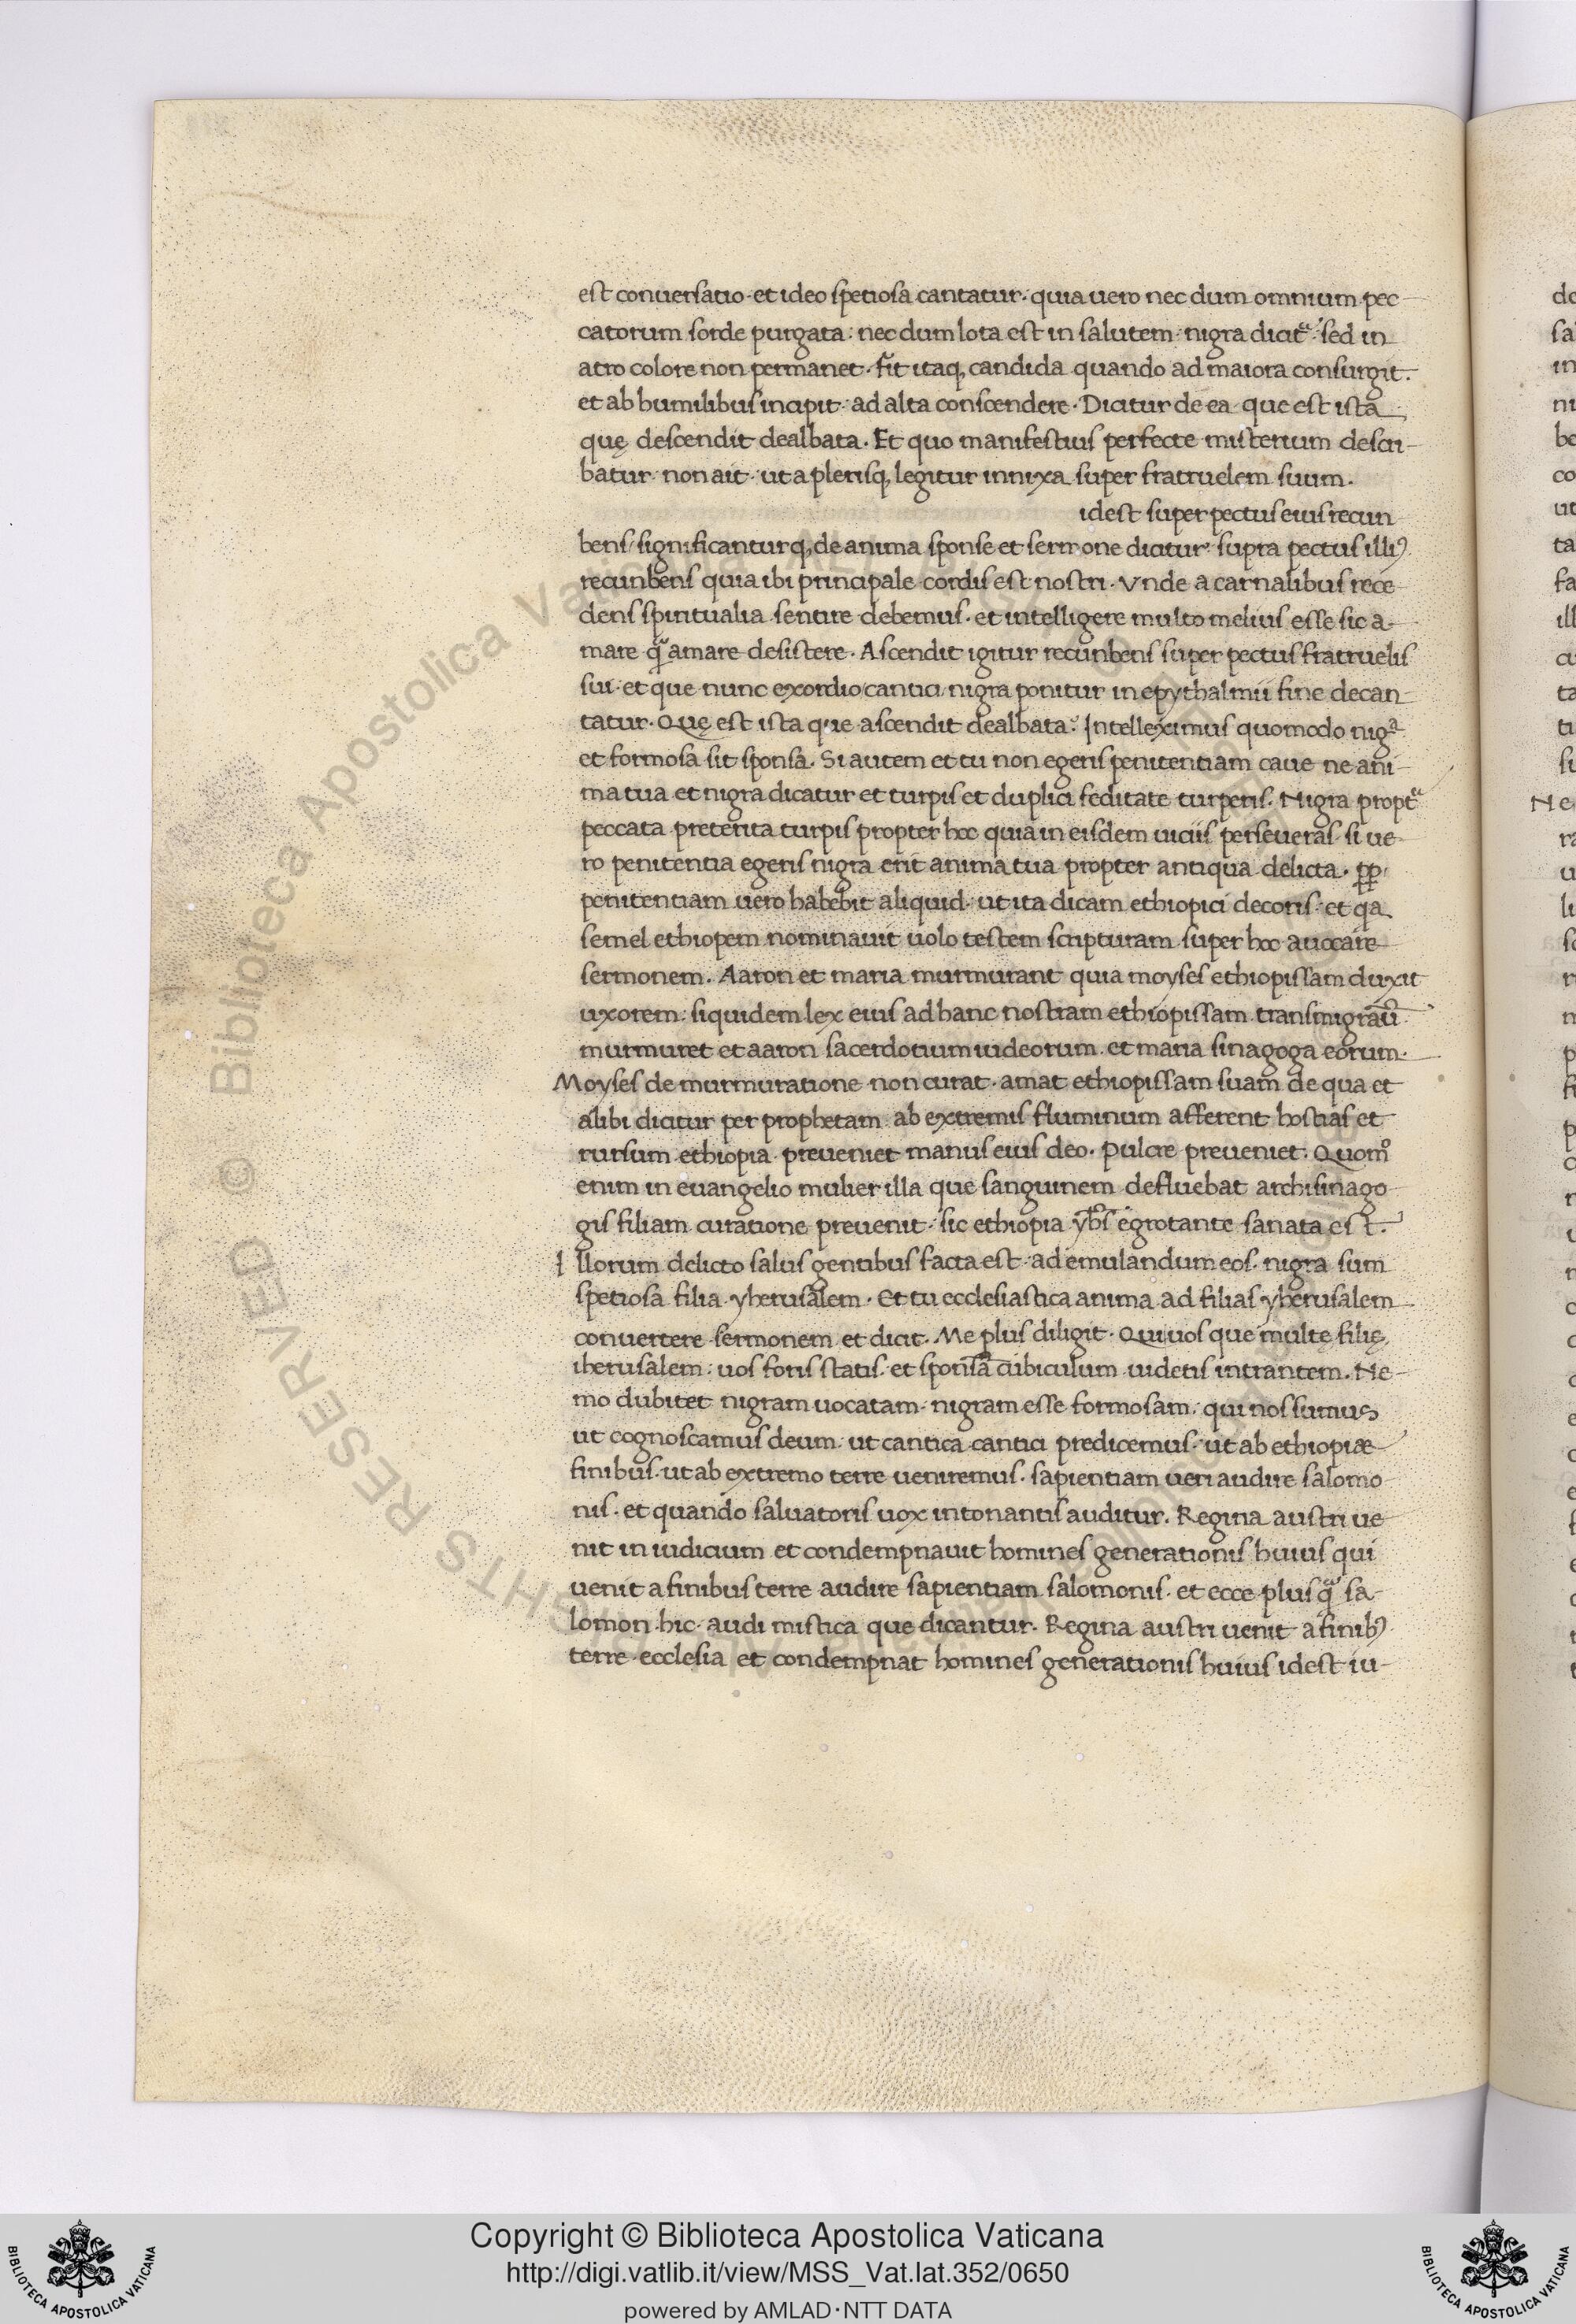 est conuersatio · et ideo spetiosa cantatur · quia uero nec dum omnium pec
catorum sorde purgata : nec dum lota est in salutem · nigra dicit᷑ · sed in
atro colore non permanet · fit itaq, candida quando ad maiora consurgit ·
et ab humilibus incipit · ad alta conscendere · Dicitur de ea que est ista
quę descendit dealbata · Et quo manifestius perfecte misterium descri-
batur · non ait · ut a plerisq, legitur innixa super fratruelem suum ·
idest super pectus eius recun
bens / significanturq, de anima sponse et sermone dicitur · supra pectus illiꝰ
recunbens quia ibi principale cordis est nostri · Vnde a carnalibus rece
dens spiritualia sentire debemus · et intelligere multo melius esse sic a-
mare qᷓ amare desistere · Ascendit igitur recunbens super pectus fratruelis
sui · et que nunc exordio cantici nigra ponitur in epythalmii fine decan
tatur · Quę est ista que ascendit dealbata · Intelleximus quomodo nigᵃ
et formosa sit sponsa · Si autem et tu non egeris penitentiam caue ne ani-
ma tua et nigra dicatur et turpis et duplici feditate turperis · Nigra propt᷑
peccata preterita turpis propter hoc quia in eisdem uiciis perseueras · si ue-
ro penitentia egeris nigra erit anima tua propter antiqua delicta · ꝓꝑ
penitentiam uero habebit aliquid · ut ita dicam ethiopici decoris · et qa
semel ethiopem nominauit uolo testem scripturam super hoc auocare
sermonem · Aaron et maria murmurant quia moyses ethiopissam duxit
uxorem : siquidem lex eius ad hanc nostram ethiopissam transmigrau᷑
murmuret et aaron sacerdotium iudeorum · et maria sinagoga eorum ·
Moyses de murmuratione non curat · amat ethiopissam suam de qua et
alibi dicitur per prophetam · ab extremis fluminum afferent hostias et
rursum ethiopia preueniet manus eius deo · Pulcre preueniet · Quomº
enim in euangelio mulier illa que sanguinem defluebat archisinago
gis filiam curatione preuenit · sic ethiopia yh̅s egrotante sanata est ·
Illorum delicto salus gentibus facta est · ad emulandum eos · nigra sum
spetiosa filia yherusalem · Et tu ecclesiastica anima ad filias yherusalem
conuertere sermonem et dicit · Me plus diligit · Qui uos que multę filię
iherusalem : uos foris statis · et sponsa cubiculum uidetis intrantem · Ne-
mo dubitet nigram uocatam · nigram esse formosam · qui nos sumus
ut cognoscamus deum · ut cantica cantici predicemus · ut ab ethiopiæ
finibus · ut ab extremo terre ueniremus · sapientiam ueri audire salomo
nis · et quando saluatoris uox intonantis auditur · Regina austri ue
nit in iudicium et condempnauit homines generationis huius qui
uenit a finibus terre audire sapientiam salomonis · et ecce plus qᷓ sa-
lomon hic · audi mistica que dicantur · Regina austri uenit a finibꝰ
terre · ecclesia et condempnat homines generationis huius idest iu-
Copyright © Biblioteca Apostolica Vaticana
http://digi.vatlib.it/view/MSS_Vat.lat.352/0650
powered by AMLAD·NTT DATA